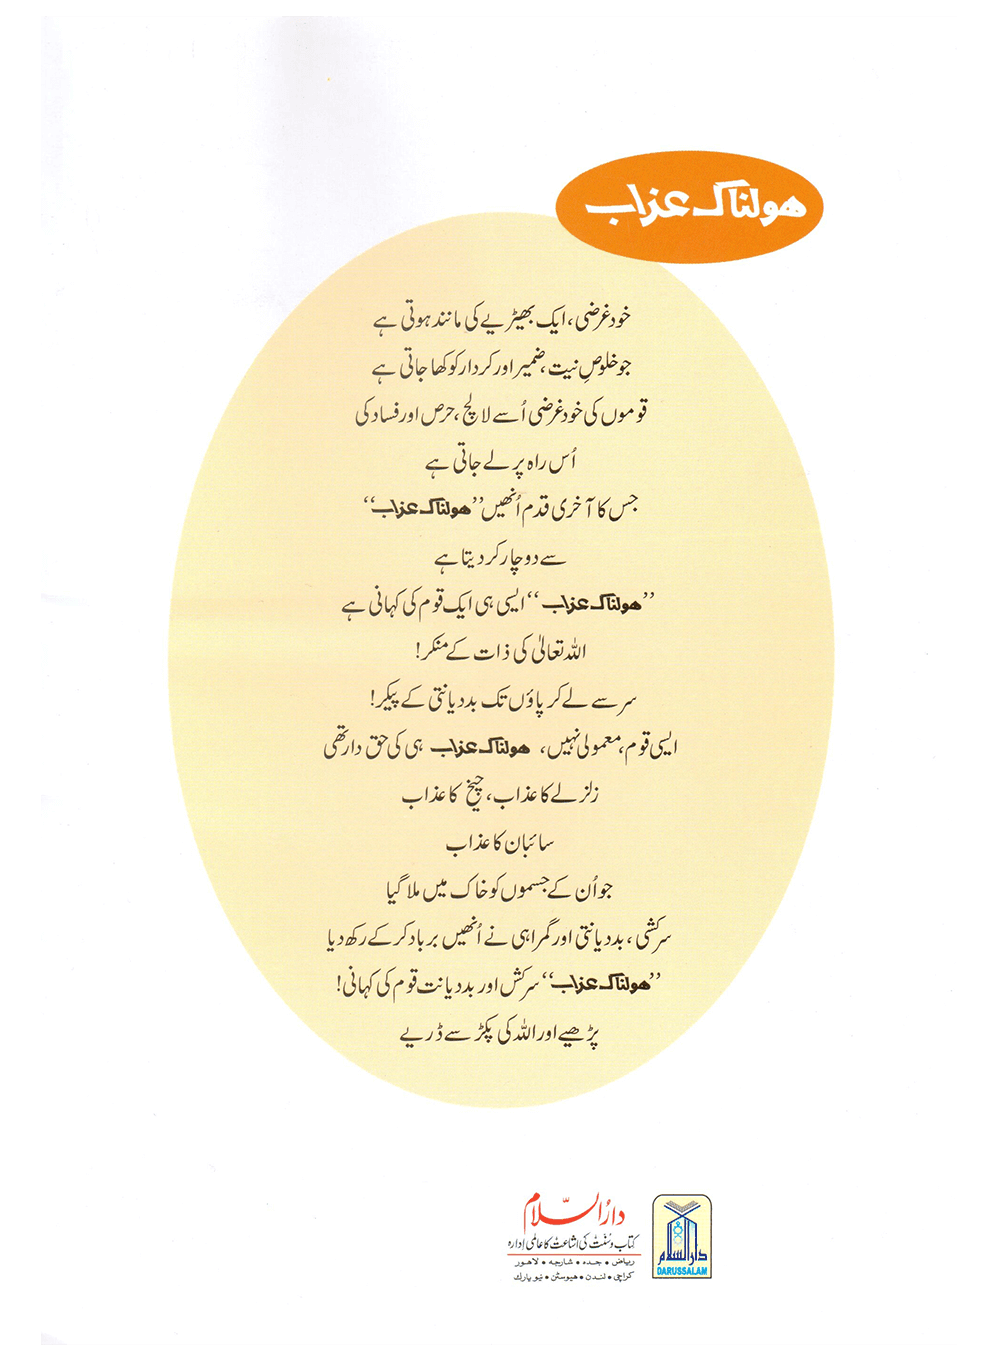 ھولناک عذاب
خودغرضی، ایک بھیڑیے کی مانند ہوتی ہے
جو خلوصِ نیت، ضمیر اور کردار کو کھا جاتی ہے
قوموں کی خودغرضی اُسے لالچ، حرص اور فساد کی
اُس راہ پر لے جاتی ہے
جس کا آخری قدم اُنھیں ’’ھولناک عذاب‘‘
سے دوچار کر دیتا ہے
’’ھولناک عذاب‘‘ ایسی ہی ایک قوم کی کہانی ہے
اللہ تعالیٰ کی ذات کے منکر!
سر سے لے کر پاؤں تک بددیانتی کے پیکر!
ایسی قوم، معمولی نہیں، ھولناک عذاب ہی کی حق دار تھی
زلزلے کا عذاب، چیخ کا عذاب
سائبان کا عذاب
جو اُن کے جسموں کو خاک میں ملا گیا
سرکشی، بددیانتی اور گمراہی نے اُنھیں برباد کر کے رکھ دیا
’’ھولناک عذاب‘‘ سرکش اور بددیانت قوم کی کہانی!
پڑھیے اور اللہ کی پکڑ سے ڈریے
دارُالسّلام
کتاب و سُنّت کی اشاعت کا عالمی اِدارہ
ریاض • جدہ • شارجہ • لاھور
کراچی • لندن • ھیوسٹن • نیو یارک
دارالسلام
DARUSSALAM